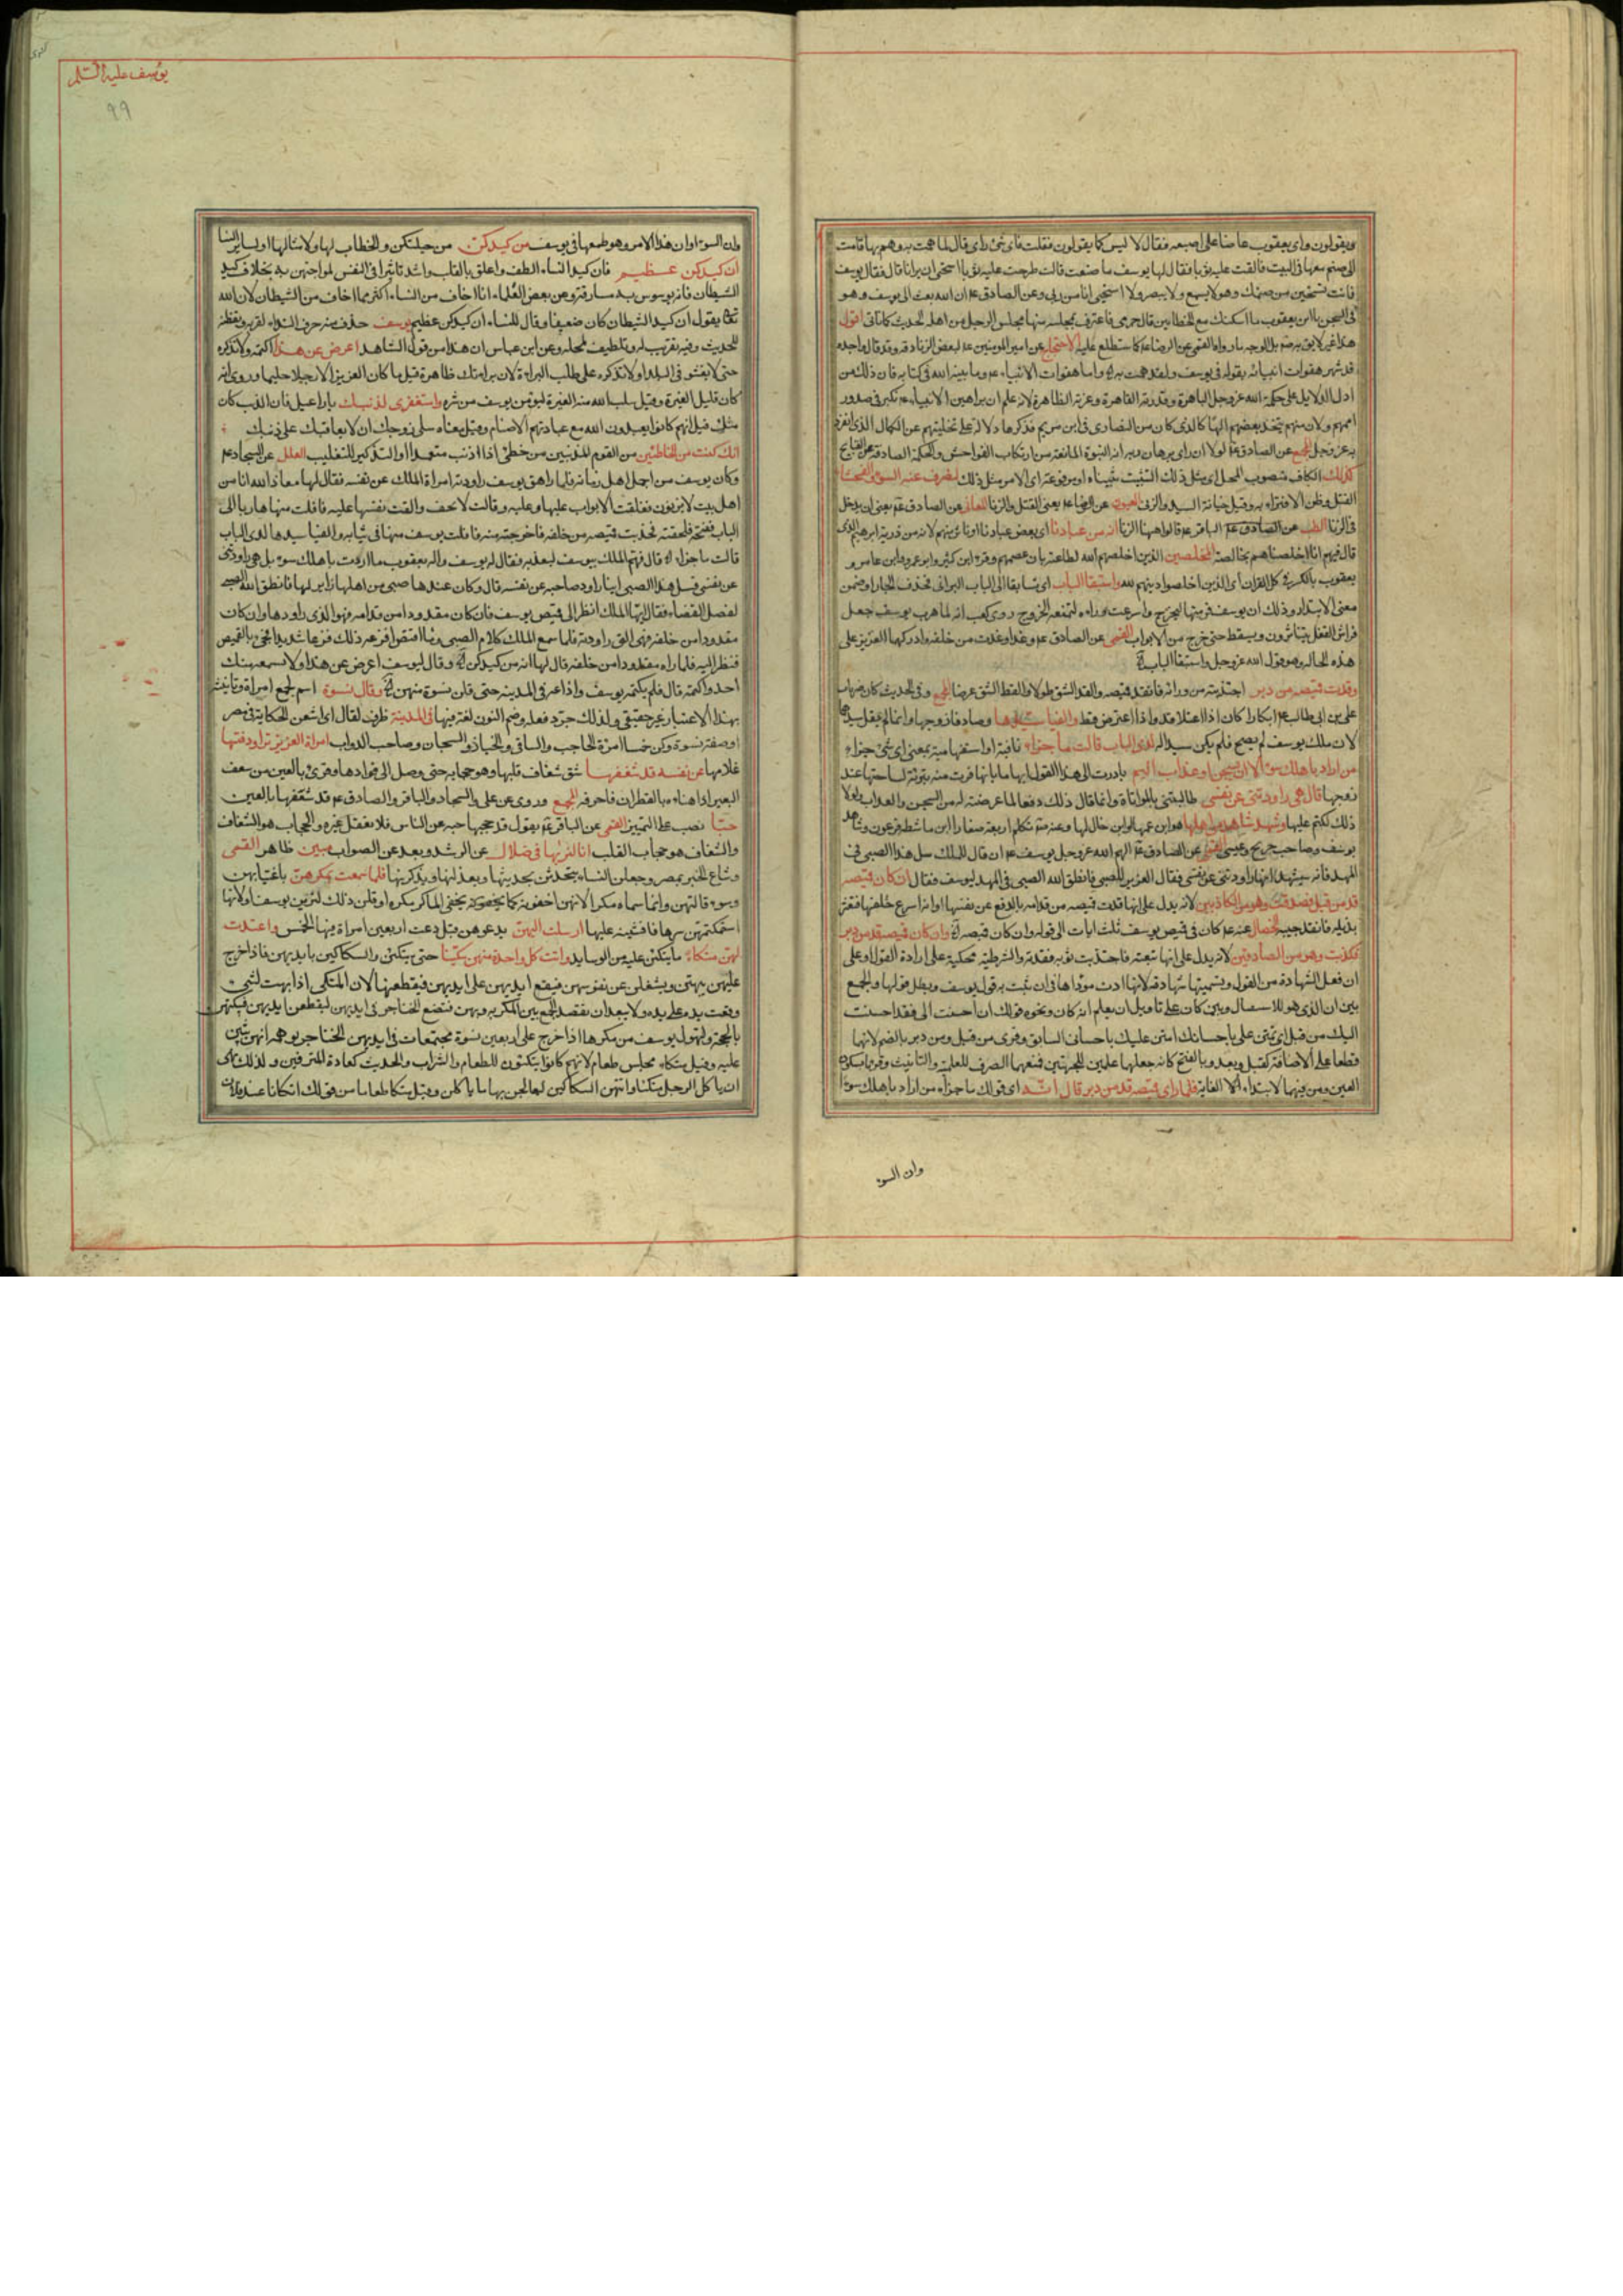 ويقولون رأى يعقوب عاضا على اصبعه فقال لا ليس كما يقولون فقلت فاى شئ رأى قال لما همت به وهم بها قامت
الى صنم معها فى البيت فالقت عليه ثوبا فقال لها يوسف ما صنعت قالت طرحت عليه ثوبا استحيى ان يرانا قال فقال يوسف
فانت تستحين من صنمك وهو لا يسمع ولا يبصر ولا استحيى انا من ربى وعن الصادق ع ان الله بعث الى يوسف وهو
فى السجن يا ابن يعقوب ما اسكنك مع الخطائين قال جرمى فاعترف بمجلسه منها مجلس الرجل من اهله الحديث كما تاتى اقول
هذا غير لايق به بل الوجه ما رواه القمى عن الرضا ع كما ستطلع عليه الاحتجاج عن امير المؤمنين ع لبعض الزنادقة وقد قال واجده
قد شهر هفوات انبيائه بقوله فى يوسف ولقد همت به واما هفوات الانبياء ع وما بينه الله فى كتابه فان ذلك من
ادل الدلايل على حكمة الله عز وجل الباهرة وقدرته القاهرة وعزته الظاهرة لانه علم ان براهين الانبياء تكبر فى صدور
اممهم ولان منهم يتخذ بعضهم الها كالذى كان من النصارى فى ابن مريم فذكرها دلالة على تخلفهم عن الكمال الذى انفرد
به عز وجل المجمع عن الصادق ع لولا ان راى برهان ربه انه النبوة المانعة من ارتكاب الفواحش والحكمة الصادفة عن القبايح
كذلك الكاف منصوب المحل اى مثل ذلك التثبيت ثبتناه او مرفوعة اى الامر مثل ذلك لنصرف عنه السوء والفحشاء
القتل وظن الافتراء به وقيل خيانة السيد والزنى العيون عن الرضا ع يعنى القتل والزنا المعانى عن الصادق ع يعنى ان يدخل
فى الزنا انه من عبادنا اى بعض عبادنا او ناش منهم لانه من ذرية ابرهيم الذى
قال فيهم انا اخلصناهم بخالصة المخلصين الذين اخلصهم الله لطاعته بان عصمهم وقره ابن كثير وابو عرو وابن عامر و
يعقوب بالكسر فى كل القران اى الذين اخلصوا دينهم لله واستبقا الباب اى تسابقا الى الباب البرانى فحذف الجار او ضمن
معنى الابتدار وذلك ان يوسف فر منها ليخرج واسرعت وراءه لتمنعه الخروج روى كعب انه لما هرب يوسف جعل
فراش القفل يتناثر ويسقط حتى خرج من الابواب القمى عن الصادق ع وغدا وغدت من خلفه وادركهما العزيز على
هذه الحاله وهو قول الله عز وجل واستبقا الباب
وقدت قميصه من دبر اجتذبته من ورائه فانقد قميصه والقد الشق طولا والقط الشق عرضا المجمع وفى الحديث كان ضربات
على بن ابى طالب ع ابكارا كان اذا اعتلا قد واذا اعترض قط والفيا سيدها وصادفا زوجها وانما لم يقل سيدهما
لان ملك يوسف لم يصح فلم يكن سيدا له لدى الباب قالت ما جزاء نافية او استفهامية بمعنى اى شئ جزاء
من اراد باهلك سوءا الا ان يسجن او عذاب اليم بادرت الى هذا القول ايهاما بانها فرت منه تبرئة لساحتها عند
زوجها قال هى راودتنى عن نفسى طالبتنى بالمواتاة وانما قال ذلك دفعا لما عرضته له من السجن والعذاب ولولا
ذلك لكتم عليها وشهد شاهد من اهلها هو ابن عمها وابن خال لها وعنه تكلم اربعة صغارا ابن ماشطة فرعون وشاهد
يوسف وصاحب جريح وعيسى القمى عن الصادق ع الهم الله عز وجل يوسف ع ان قال للملك سل هذا الصبى فى
المهد فانه سيشهد انها راودتنى عن نفسى فقال العزيز للصبى فانطق الله الصبى فى المهد ليوسف فقال ان كان قميصه
قد من قبل فصدقت وهو من الكاذبين لانه يدل على انها قدت قميصه من قدامه بالدفع عن نفسها او انه اسرع خلفها فتعثر
بذيله فانقد جيبه الخصال عنه ع كان فى قميص يوسف ثلث ايات الى قوله وان كان قميصه وان كان قميصه قد من دبر
فكذبت وهو من الصادقين لانه يدل على انها تبعته فاجتذبت ثوبه فقدته والشرطية محكية على ارادة القول او على
ان فعل الشهادة من القول وتسميتها شهادة لانها ادت مؤداها فى ان ثبت به قول يوسف وبطل قولها والجمع
بين ان الذى هو للاستقبال وبين كان على تاويل ان يعلم انه كان ونحوه قولك ان احسنت الى فقد احسنت
اليك من قبل اى تمتن على باحسانك امتن عليك باحسانى السابق وقرئ من قبل ومن دبر بالضم لانهما
قطعا على الاضافة كقبل وبعد وبالفتح كانه جعلهما علمين للجهتين فمنعهما الصرف للعلمية والتانيث وقريا بسكون
العين ومن فيهما لابتداء الغاية فلما راى قميصه قد من دبر قال انه اى قولك ما جزاء من اراد باهلك سوءا
وان السوء
يوسف عليه السلم
٩٩
وان السوء او ان هذا الامر وهو طمعها فى يوسف من كيدكن من حيلتكن والخطاب لها ولامثالها او لساير النسا
ان كيدكن عظيم فان كيد النساء الطف واعلق بالقلب واشد تاثيرا فى النفس لمواجهتن به بخلاف كيد
الشيطان فانه يوسوس به مسارقة وعن بعض العلماء انا اخاف من النساء اكثر مما اخاف من الشيطان لان الله
تعالى يقول ان كيد الشيطان كان ضعيفا وقال للنساء ان كيدكن عظيم يوسف حذف منه حرف النداء لقربه وتفطنه
للحديث وفيه تقريب له وتلطيف لمحله وعن ابن عباس ان هذا من قول الشاهد اعرض عن هذا اكتمه ولا تذكره
حتى لا يفشو فى البلد او لا تذكره على طلب البراءة لان براءتك ظاهرة قيل ما كان العزيز الا رجلا حليما وروى انه
كان قليل الغيرة وقيل سلب الله منه الغيرة ليوقى يوسف من شره واستغفرى لذنبك يا راعيل فان الذنب كان
منك قيل انهم كانوا يعبدون الله مع عبادتهم الاصنام وقيل معناه سلى زوجك ان لا يعاقبك على ذنبك
انك كنت من الخاطئين من القوم المذنبين من خطئ اذا اذنب متعمدا والتذكير للتغليب العلل عن السجاد ع
وكان يوسف من اجمل اهل زمانه فلما راهق يوسف راودته امراة الملك عن نفسه فقال لها معاذ الله انا من
اهل بيت لا يزنون فغلقت الابواب عليها وعليه وقالت لا تخف والقت نفسها عليه فافلت منها هاربا الى
الباب ففتحه فلحقته فجذبت قميصه من خلفه فاخرجته منه فافلت يوسف منها فى ثيابه والفيا سيدها لدى الباب
قالت ما جزاء قال فهم الملك بيوسف ليعذبه فقال له يوسف واله يعقوب ما اردت باهلك سوءا بل هى راودتنى
عن نفسى فسل هذا الصبى اينا راود صاحبه عن نفسه قال وكان عندها صبى من اهلها زاير لها فانطق الله الصبى
لفصل القضاء فقال ايها الملك انظر الى قميص يوسف فان كان مقدودا من قدامه فهو الذى راودها وان كان
مقدودا من خلفه فهى التى راودته فلما سمع الملك كلام الصبى وما اقتص افزعه ذلك فزعا شديدا فجئ بالقميص
فنظر اليه فلما راه مقدودا من خلفه قال لها انه من كيدكن وقال ليوسف اعرض عن هذا ولا يسمعه منك
احد واكتمه قال فلم يكتمه يوسف واذاعه فى المدينه حتى قلن نسوة منهن وقال نسوة اسم لجمع امراة وتانيثه
بهذا الاعتبار غير حقيقى ولذلك جرد فعله وضم النون لغة فيها فى المدينة ظرف لقال اى اشعن الحكاية فى مصر
او صفة نسوة وكن خمسا امرءة الحاجب والساقى والخباز والسجان وصاحب الدواب امراة العزيز تراود فتيها
غلامها عن نفسه قد شغفها شق شغاف قلبها وهو حجابه حتى وصل الى فؤادها وقرئ بالعين من شعف
البعير اذا هناءه بالقطران فاحرقه المجمع وروى عن على والسجاد والباقر والصادق ع قد شعفها بالعين
حبا نصب على التمييز القمى عن الباقر ع يقول قد حجبها حبه عن الناس فلا تعقل غيره والحجاب هو الشغاف
والشغاف هو حجاب القلب انا لنريها فى ضلال عن الرشد وبعد عن الصواب مبين ظاهر القمى
وشاع الخبر بمصر وجعلن النساء يتحدثن بحديثها ويعذلنها ويذكرنها فلما سمعت بمكرهن باغتيابهن
وسوء قالتهن وانما سماه مكرا لانهن اخفونه كما يخفى الماكر مكره او قلن ذلك لتريهن يوسف او لانها
استكتمتهن سرها فافشينه عليها ارسلت اليهن يدعوهن قيل دعت اربعين امراة فيها الخمس واعتدت
لهن متكاء ما يتكئن عليه من الوسايد واتت كل واحدة منهن سكينا حتى يتكئن والسكاكين بايديهن فاذا خرج
عليهن يبهتن ويشغلن عن نفوسهن فيقع ايديهن على ايديهن فيقطعنها لان المتكى اذا بهت لشئ
وقعت يده على يده ولا يبعد ان يقصد الجمع بين المكر به وبهن فتضع الخناجر فى ايديهن ليقطعن ايديهن فيبكتهن
بالحجة ولتهول يوسف من مكرها اذا خرج على اربعين نسوة مجتمعات فى ايديهن الخناجر يوهمه انهن يثبن
عليه وقيل متكاء مجلس طعام لانهم كانوا يتكئون للطعام والشراب والحديث كعادة المترفين ولذلك نهى
ان ياكل الرجل متكئا واتتهن السكاكين ليعالجن بها ما ياكلن وقيل متكا طعاما من قولك اتكانا عند فلان